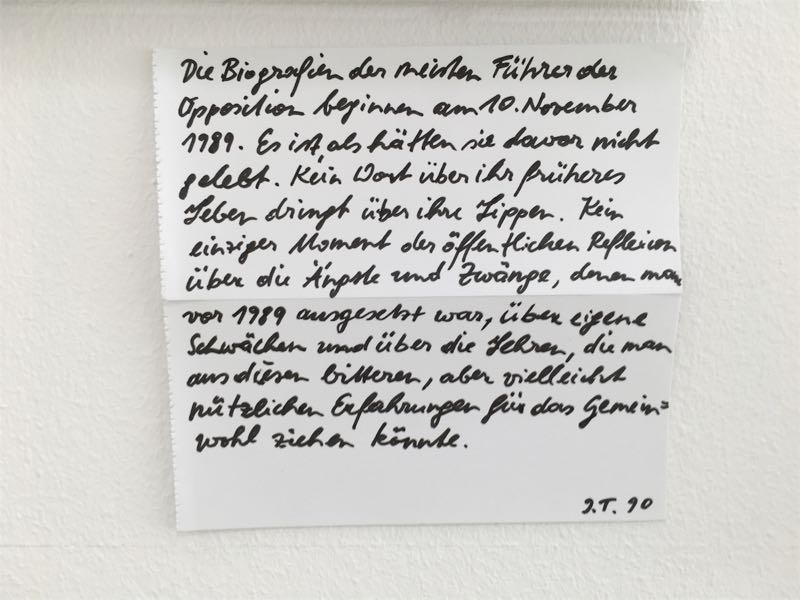 Die Biografien der meisten Führer der
Opposition beginnen am 10. November
1989. Es ist, als hätten sie davor nicht
gelebt. Kein Wort über ihr früheres
Leben dringt über ihre Lippen. Kein
einziger Moment der öffentlichen Reflexion
über die Ängste und Zwänge, denen man
vor 1989 ausgesetzt war, über eigene
Schwächen und über die Lehren, die man
aus diesen bitteren, aber vielleicht
nützlichen Erfahrungen für das Gemein=
wohl ziehen könnte.
J.T. 90